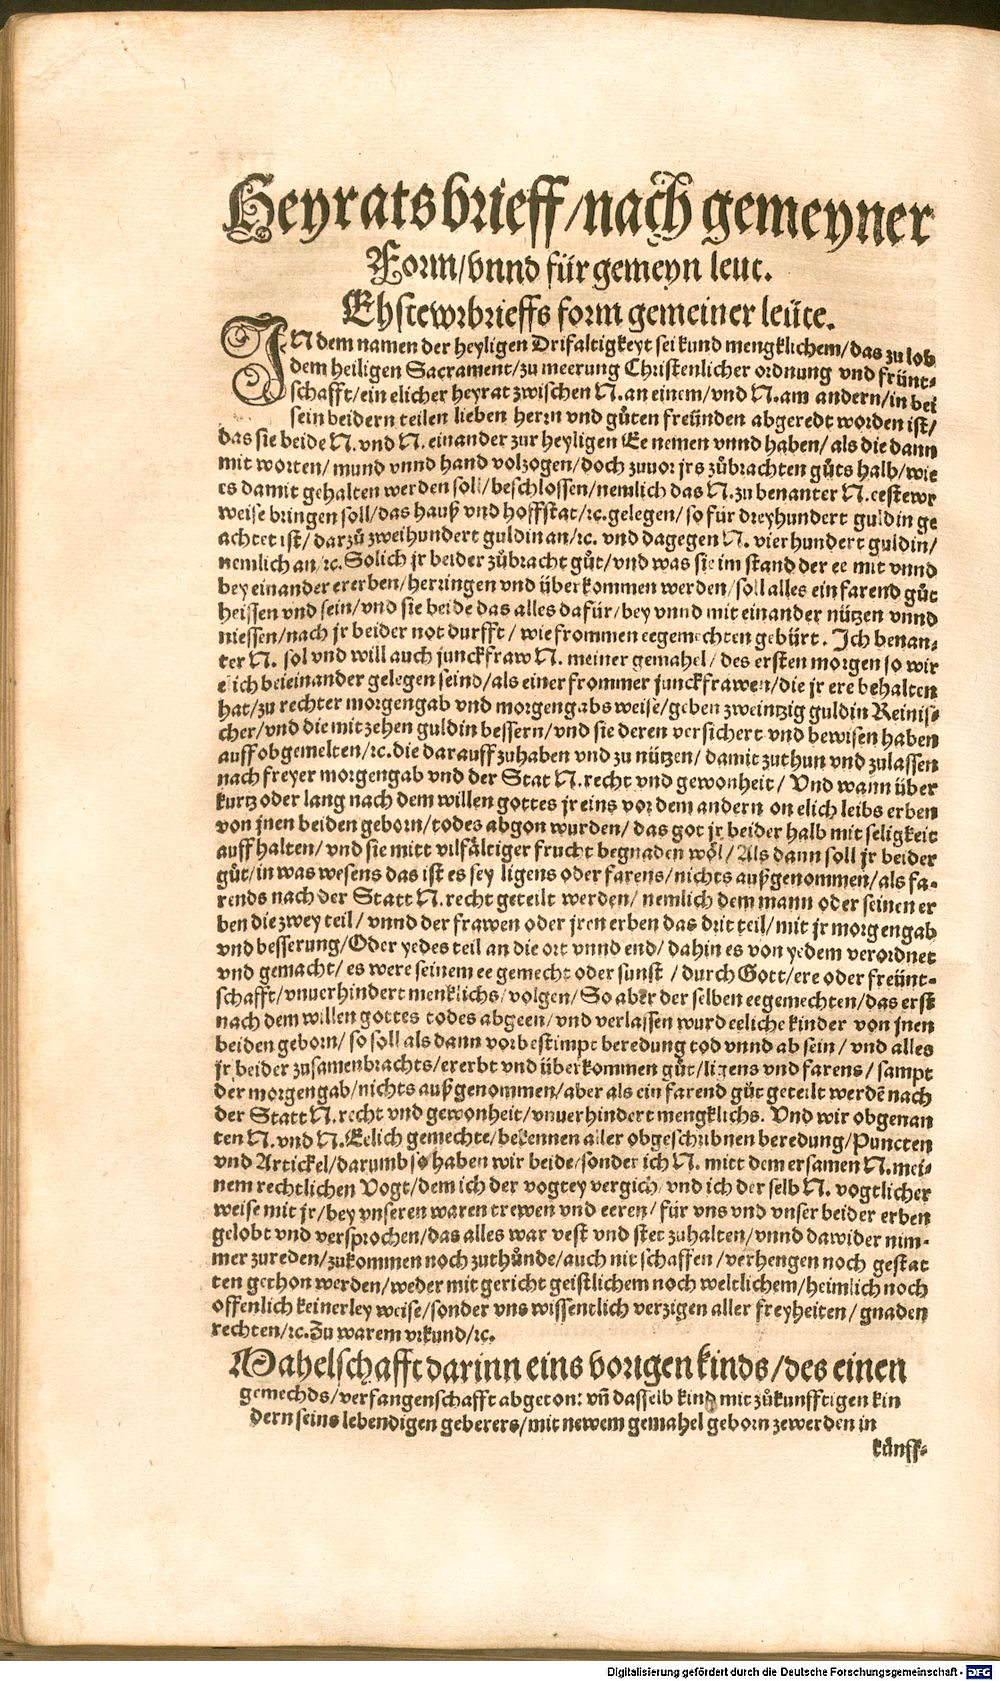 Heyratsbrieff/nach gemeyner
Form/vnnd für gemeyn leut.
Ehstewrbrieffs form gemeiner leüte.
IN dem namen der heyligen Drifaltigkeyt sei kund mengklichem/das zu lob
dem heiligen Sacrament/zu meerung Christenlicher ordnung vnd frünt-
schafft/ein elicher heyrat zwischen N. an einem/vnd N. am andern/in bei
sein beidern teilen lieben herrn vnd gůten freünden abgeredt worden ist/
das sie beide N. vnd N. einander zur heyligen Ee nemen vnnd haben/als die dann
mit worten/mund vnnd hand volzogen/doch zuuor jrs zůbrachten gůts halb/wie
es damit gehalten werden soll/beschlossen/nemlich das N. zu benanter N. eestewr
weise bringen soll/das hauß vnd hoffstat/ꝛc. gelegen/so für dreyhundert guldin ge
achtet ist/darzů zweihundert guldin an/ꝛc. vnd dagegen N. vierhundert guldin/
nemlich an/ꝛc. Solich jr beider zůbracht gůt/vnd was sie im stand der ee mit vnnd
bey einander ererben/herringen vnd überkommen werden/soll alles ein farend gůt
heissen vnd sein/vnd sie beide das alles dafür/bey vnnd mit einander nützen vnnd
niessen/nach jr beider notdurfft/wie frommen eegemechten gebürt. Ich benan-
ter N. sol vnd will auch junckfraw N. meiner gemahel/des ersten morgen so wir
elich beieinander gelegen seind/als einer frommer junckfrawen/die jr ere behalten
hat/zu rechter morgengab vnd morgengabs weise/geben zweintzig guldin Reinis-
cher/vnd die mit zehen guldin bessern/vnd sie deren versichert vnd bewisen haben
auff obgemelten/ꝛc. die darauff zuhaben vnd zu nützen/damit zuthun vnd zulassen
nach freyer morgengab vnd der Stat N. recht vnd gewonheit/Vnd wann über
kurtz oder lang nach dem willen gottes jr eins vor dem andern on elich leibs erben
von jnen beiden geborn/todes abgon wurden/das got jr beider halb mit seligkeit
auffhalten/vnd sie mitt vilfältiger frucht begnaden wöl/Als dann soll jr beider
gůt/in was wesens das ist es sey ligens oder farens/nichts außgenommen/als fa-
rends nach der Statt N. recht geteilt werden/nemlich dem mann oder seinen er
ben die zwey teil/vnnd der frawen oder jren erben das drit teil/mit jr morgengab
vnd besserung/Oder yedes teil an die ort vnnd end/dahin es von yedem verordnet
vnd gemacht/es were seinem eegemecht oder sunst/durch Gott/ere oder freünt-
schafft/vnuerhindert menklichs/volgen/So aber der selben eegemechten/das erst
nach dem willen gottes todes abgeen/vnd verlassen wurd eeliche kinder von jnen
beiden geborn/so soll als dann vorbestimpt beredung tod vnnd ab sein/vnd alles
jr beider zusamenbrachts/ererbt vnd überkommen gůt/ligens vnd farens/sampt
der morgengab/nichts außgenommen/aber als ein farend gůt geteilt werdē nach
der Statt N. recht vnd gewonheit/vnuerhindert mengklichs. Vnd wir obgenan
ten N. vnd N. Eelich gemechte/bekennen aller obgeschribnen beredung/Puncten
vnd Artickel/darumb so haben wir beide/sonder ich N. mitt dem ersamen N. mei-
nem rechtlichen Vogt/dem ich der vogtey vergich/vnd ich der selb N. vogtlicher
weise mit jr/bey vnseren waren trewen vnd eeren/für vns vnd vnser beider erben
gelobt vnd versprochen/das alles war vest vnd stet zuhalten/vnnd dawider nim-
mer zureden/zukommen noch zuthůnde/auch nit schaffen/verhengen noch gestat
ten gethon werden/weder mit gericht geistlichem noch weltlichem/heimlich noch
offenlich keinerley weise/sonder vns wissentlich verzigen aller freyheiten/gnaden
rechten/ꝛc. Zu warem vrkund/ꝛc.
Mahelschafft darinn eins vorigen kinds/des einen
gemechds/verfangenschafft abgeton: vñ dasselb kind mit zůkunfftigen kin
dern seins lebendigen geberers/mit newem gemahel geborn zewerden in
künff-
Digitalisierung gefördert durch die Deutsche Forschungsgemeinschaft - DFG